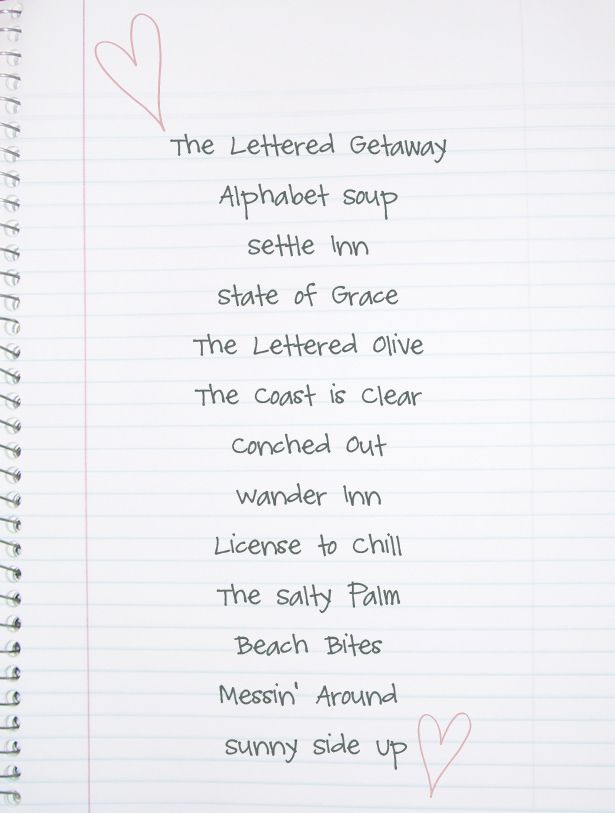 The Lettered Getaway
Alphabet soup
settle Inn
state of Grace
The Lettered Olive
The Coast is Clear
Conched Out
Wander Inn
License to Chill
The Salty Palm
Beach Bites
Messin' Around
sunny side up